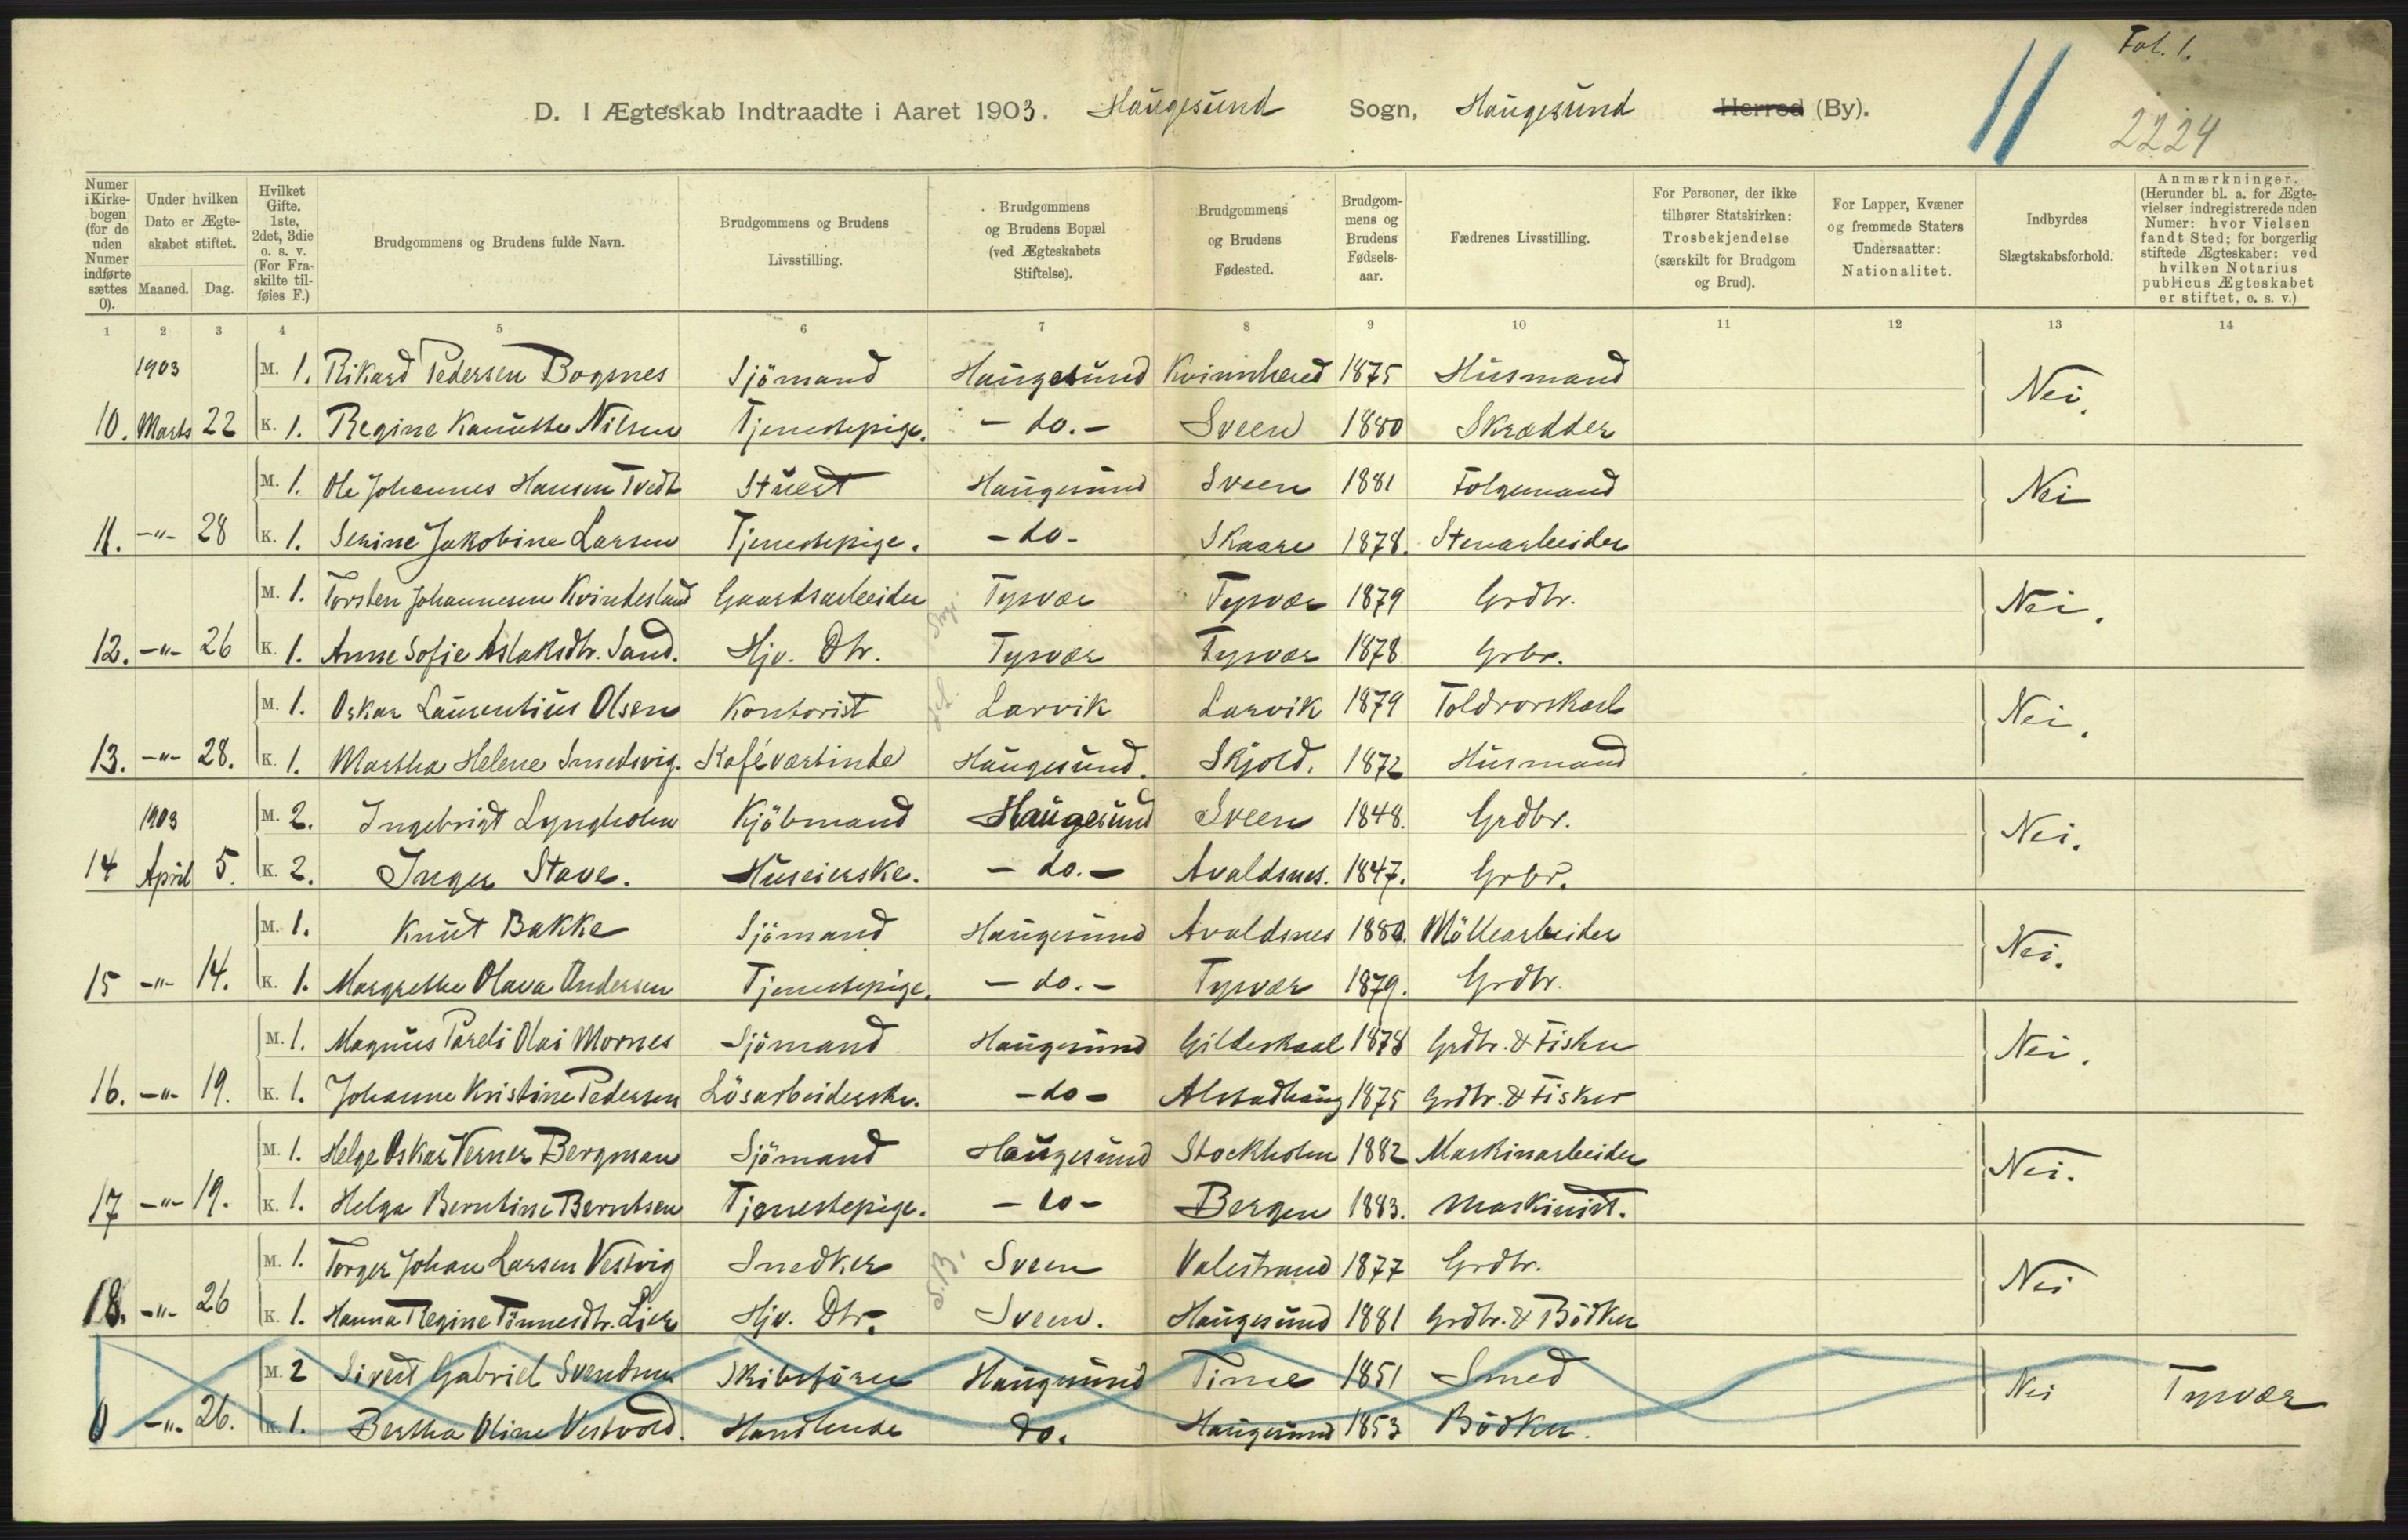 Fol. 1.
11
2224
D. I Ægteskab Indtraadte i Aaret 1903. Haugesund Sogn, Haugesund Herred (By).
Numer i Kirkebogen (for de uden Numer indførte sættes 0).
Under hvilken Dato er Ægteskabet stiftet.
Maaned. Dag.
Hvilket Gifte. 1ste, 2det, 3die o. s. v. (For Fraskilte tilføies F.)
Brudgommens og Brudens fulde Navn.
Brudgommens og Brudens Livsstilling.
Brudgommens og Brudens Bopæl (ved Ægteskabets Stiftelse).
Brudgommens og Brudens Fødested.
Brudgommens og Brudens Fødselsaar.
Fædrenes Livsstilling.
For Personer, der ikke tilhører Statskirken: Trosbekjendelse (særskilt for Brudgom og Brud).
For Lapper, Kvæner og fremmede Staters Undersaatter: Nationalitet.
Indbyrdes Slægtskabsforhold.
Anmærkninger. (Herunder bl. a. for Ægtevielser indregistrerede uden Numer: hvor Vielsen fandt Sted; for borgerlig stiftede Ægteskaber: ved hvilken Notarius publicus Ægteskabet er stiftet, o. s. v.)
1 2 3 4 5 6 7 8 9 10 11 12 13 14
1903 M. 1. Rikard Pedersen Bogsnes Sjömand Haugesund Kvinnherred 1875 Husmand Nei.
10. Marts 22 K. 1. Regine Kanutte Nilsen Tjenestepige. - do. - Sveen 1880 Skrædder
M. 1. Ole Johannes Hansen Tvedt Stuert Haugesund Sveen 1881 Folgemand Nei
11. -"- 28 K. 1. Serine Jakobine Larsen Tjenestepige. - do - Skaare 1878. Stenarbeider
M. 1. Torsten Johannesen Kvindesland Gaardsarbeider Tysvær Tysvær 1879 Grdbr. Nei.
12. -"- 26 K. 1. Anne Sofie Aslaksdtr. Sand. Hjv. Dtr. Tysvær Tysvær 1878 Grbr.
M. 1. Oskar Laurentius Olsen Kontorist Larvik Larvik 1879 Toldrorskarl Nei.
13. -"- 28. K. 1. Martha Helene Smedsvig. Kaféværtinde Haugesund. Skjold. 1872 Husmand
1903 M. 2. Ingebrigt Lyngholm Kjöbmand Haugesund Sveen 1848. Grdbr. Nei.
14 April 5. K. 2. Inger Stave. Huseierske. - do. - Avaldsnes. 1847. Grbr.
M. 1. Knut Bakke Sjömand Haugesund Avaldsnes 1880. Möllearbeider Nei.
15 -"- 14. K. 1. Margrethe Olava Andersen Tjenestepige. - do. - Tysvær 1879. Grdbr.
M. 1. Magnus Pareli Olai Mornes Sjömand Haugesund Gildeskaal 1878 Grdbr. & Fisker Nei.
16. -"- 19. K. 1. Johanne Kristine Pedersen Lösarbeiderske. - do - Alstadhaug 1875 Grdbr. & Fisker
M. 1. Helge Oskar Verner Bergman Sjömand Haugesund Stockholm 1882 Maskinarbeider Nei.
17 -"- 19. K. 1. Helga Berntine Berntsen Tjenestepige. - do - Bergen 1883. Maskinist.
M. 1. Torger Johan Larsen Vestvig Snedker S.B. Sveen Valestrand 1877 Grdbr. Nei
18. -"- 26 K. 1. Hanna Regine Tönnesdtr. Lier Hjv. Dtr. Sveen. Haugesund 1881 Grdbr. & Bödker
M. 2 Sivert Gabriel Svendsen Skibsförer Haugesund Time 1851 Smed Nei Tysvær
0 -"- 26. K. 1. Bertha Oline Vestvold. Handlende do. Haugesund 1853 Bödker.